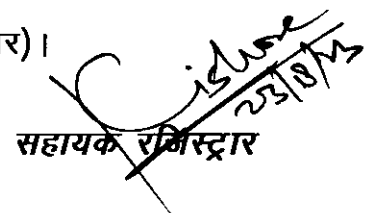 र)।
23/8/13
सहायक रजिस्ट्रार